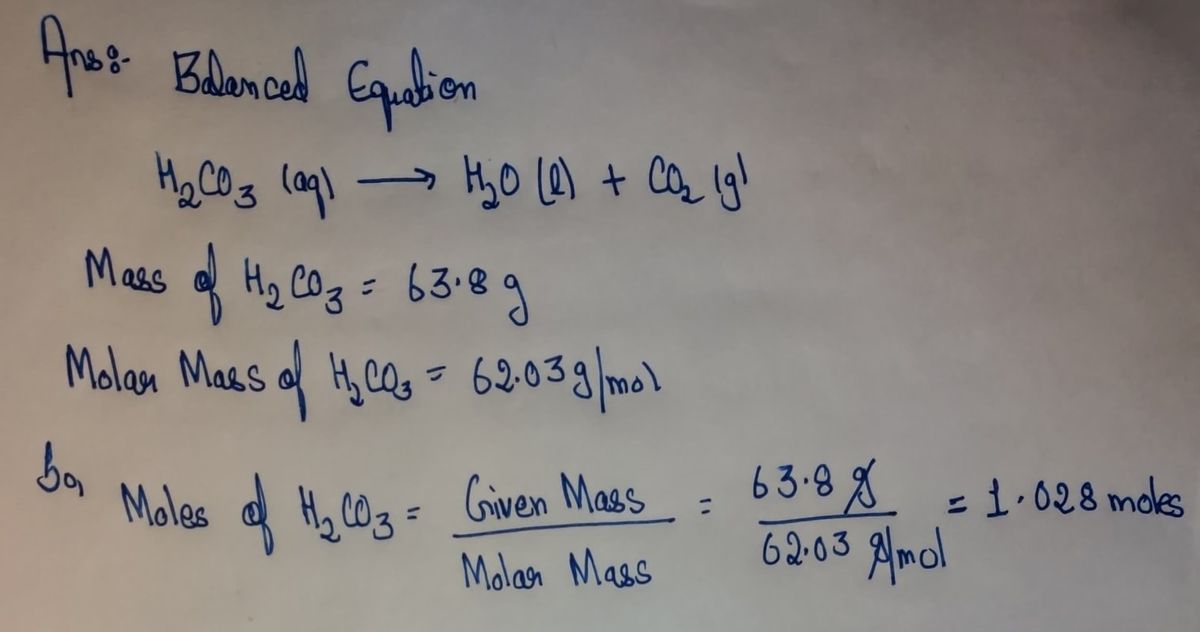 Ans:- Balanced Equation
H₂CO₃ (aq) → H₂O (l) + CO₂ (g)
Mass of H₂CO₃ = 63.8 g
Molar Mass of H₂CO₃ = 62.03 g/mol
So, Moles of H₂CO₃ = Given Mass / Molar Mass = 63.8 g / 62.03 g/mol = 1.028 moles